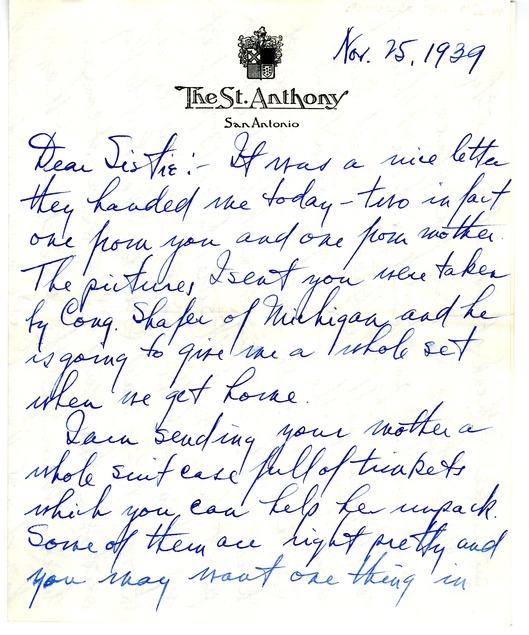 Nov. 25, 1939
The St. Anthony
San Antonio
Dear Sistie:- It was a nice letter
they handed me today - two in fact
one from you and one from mother.
The pictures I sent you were taken
by Cong. Shafer of Michigan and he
is going to give me a whole set
when we get home.
I am sending your mother a
whole suit case full of trinkets
which you can help her unpack.
Some of them are right pretty and
you may want one thing in